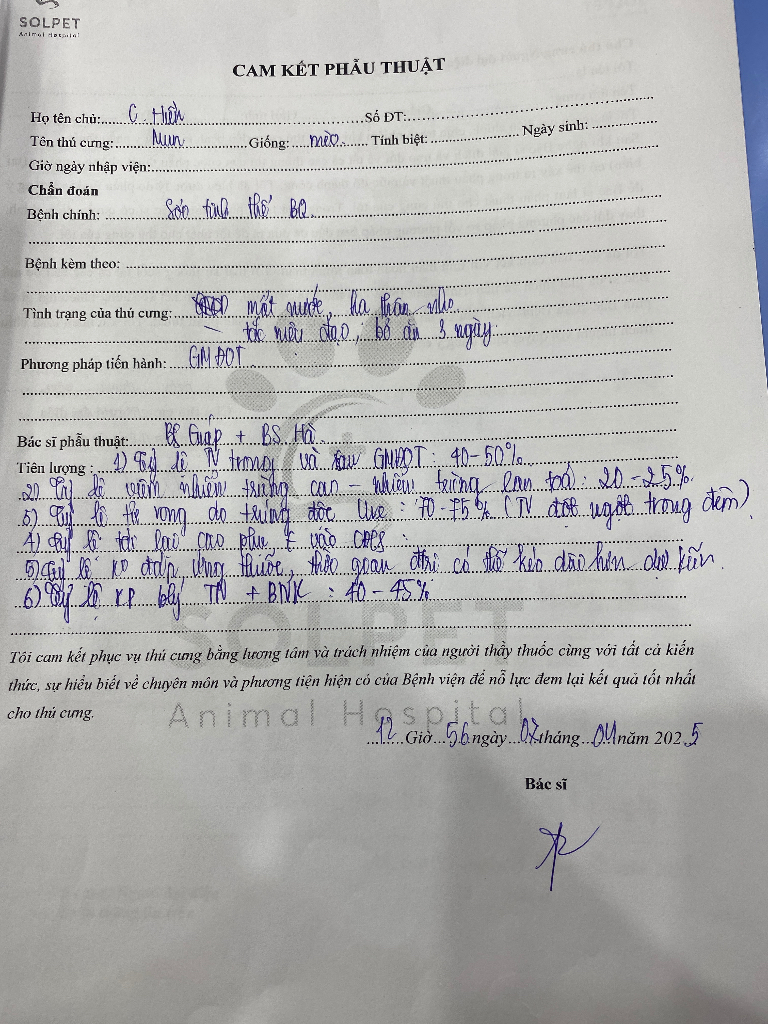 SOLPET
Animal Hospital
CAM KẾT PHẪU THUẬT
Họ tên chủ: C Hiền Số ĐT:
Tên thú cưng: Mun Giống: mèo Tính biệt: Ngày sinh:
Giờ ngày nhập viện:
Chẩn đoán
Bệnh chính: tinh thể BQ
Bệnh kèm theo:
Tình trạng của thú cưng: mất nước, hạ thân nhiệt
- tắc niệu đạo, bỏ ăn 3 ngày
Phương pháp tiến hành: GMĐOT
Bác sĩ phẫu thuật: BS Giáp + BS. Hà
Tiên lượng: 1) Tỷ lệ TV trong và sau GMĐOT: 40-50%
2) Tỷ lệ viêm nhiễm trùng cao - nhiễm trùng lan toả: 20-25%
3) Tỷ lệ tử vong do trúng độc Ure: 70-75% (TV đột ngột trong đêm)
4) Tỷ lệ tái lại cao phụ t vào
5) Tỷ lệ ko đáp ứng thuốc, thời gian đtri có thể kéo dài hơn dự kiến
6) Tỷ lệ KP TN + BNK: 40-45%
Tôi cam kết phục vụ thú cưng bằng lương tâm và trách nhiệm của người thầy thuốc cùng với tất cả kiến
thức, sự hiểu biết về chuyên môn và phương tiện hiện có của Bệnh viện để nỗ lực đem lại kết quả tốt nhất
cho thú cưng.
SOLPET
Animal Hospital
12 Giờ 56 ngày 07 tháng 04 năm 2025
Bác sĩ